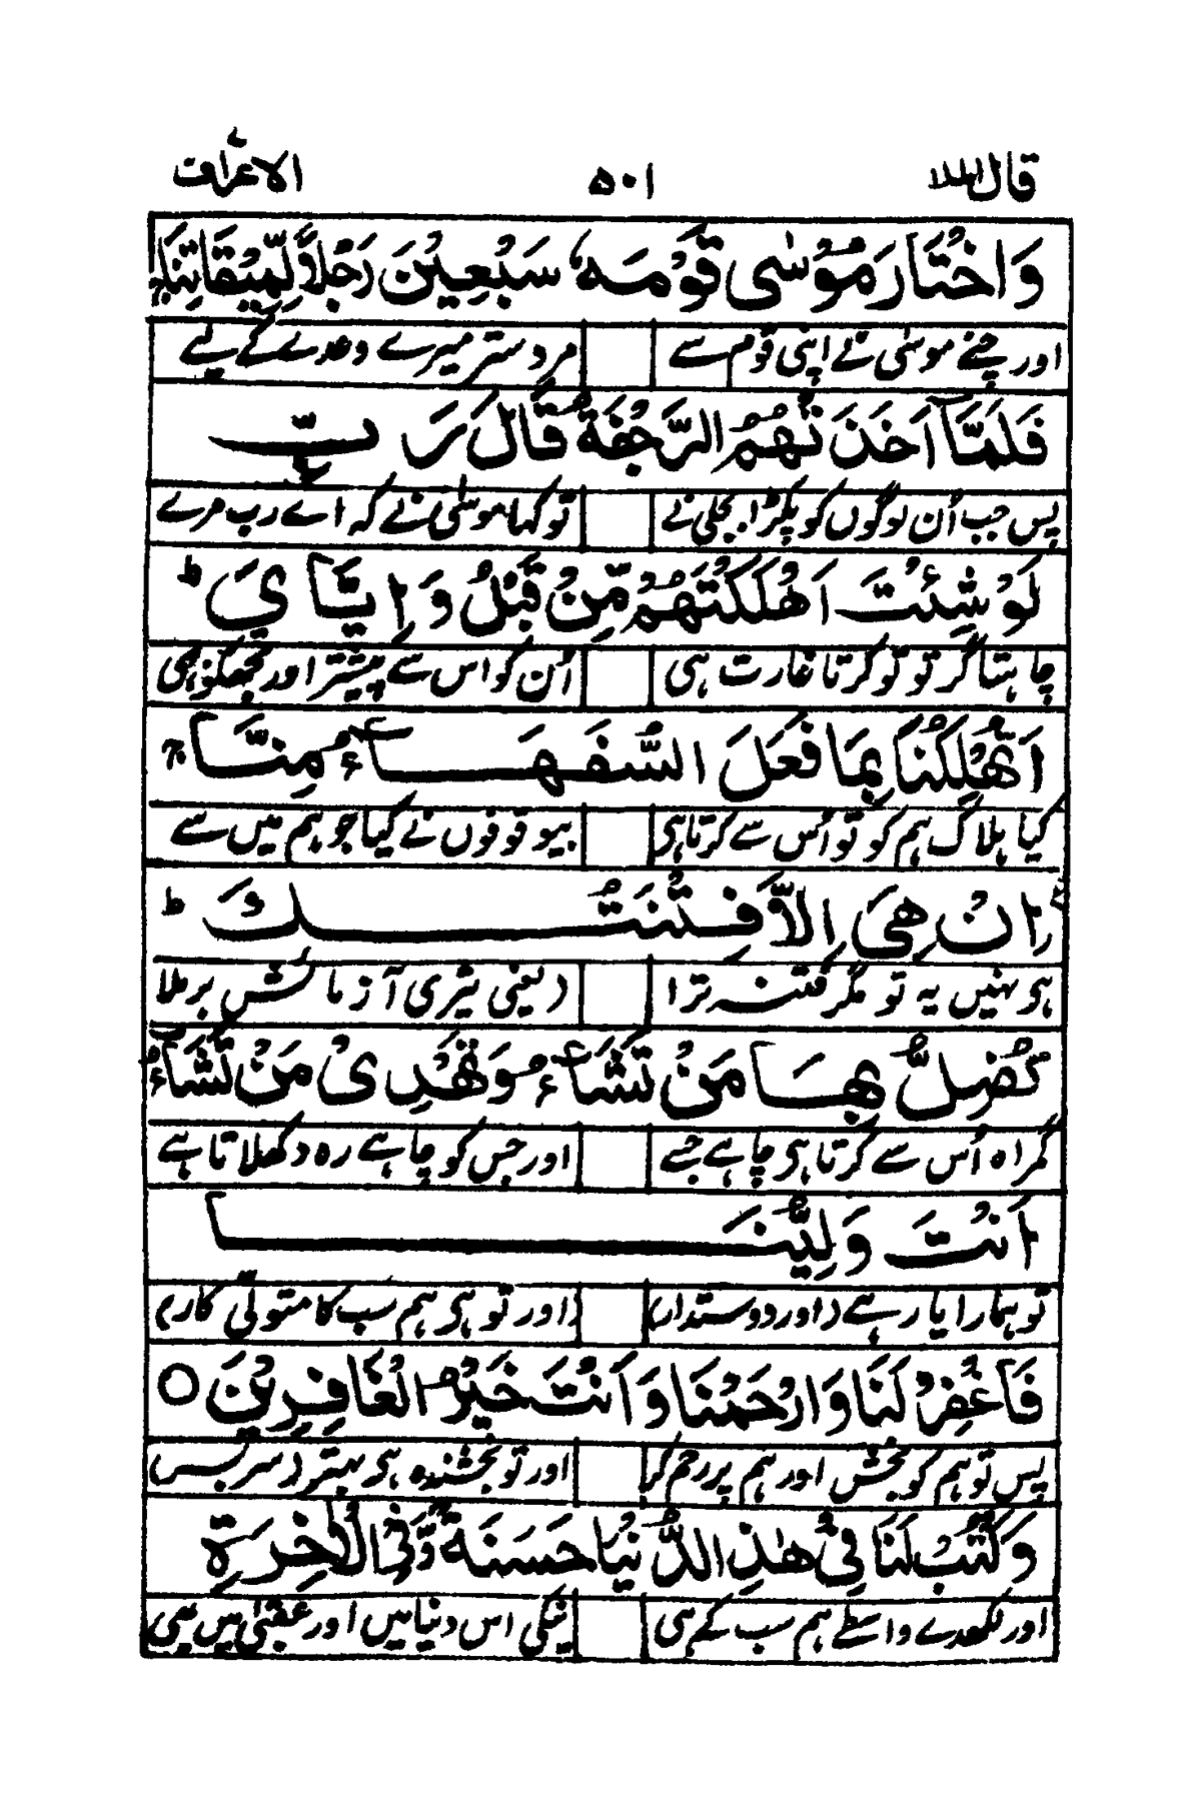 قال الملا ۵۰۱ الاعراف
وَاخْتَارَ مُوْسٰى قَوْمَهٗ سَبْعِيْنَ رَجُلًا لِّمِيْقَاتِنَا ۚ
اور چنے موسٰی نے اپنی قوم سے مرد ستر میرے وعدے کے لیے
فَلَمَّاۤ اَخَذَتْهُمُ الرَّجْفَةُ قَالَ رَبِّ
پس جب اُن لوگوں کو پکڑا بجلی نے تو کہا موسٰی نے کہ اے رب مرے
لَوْ شِئْتَ اَهْلَكْتَهُمْ مِّنْ قَبْلُ وَاِيَّايَ ؕ
چاہتا گر تو تو کرتا غارت ہی اُن کو اس سے پیشتر اور مجھکو بھی
اَتُهْلِكُنَا بِمَا فَعَلَ السُّفَهَآءُ مِنَّا ۚ
کیا ہلاک ہم کو تو اُس سے کرتا ہی بیوقوفوں نے کیا جو ہم میں سے
اِنْ هِيَ اِلَّا فِتْنَتُكَ ؕ
ہی نہیں یہ تو مگر فتنہ ترا (یعنی تیری آزمائش برملا
تُضِلُّ بِهَا مَنْ تَشَآءُ وَتَهْدِيْ مَنْ تَشَآءُ ؕ
گمراہ اُس سے کرتا ہی چاہے جسے اور جس کو چاہے رہ دکھلاتا ہے
اَنْتَ وَلِيُّنَا
تو ہمارا یار ہے (اور دوستدار) (اور تو ہی ہم سب کا متولّی کار)
فَاغْفِرْ لَنَا وَارْحَمْنَا وَاَنْتَ خَيْرُ الْغَافِرِيْنَ ○
پس تو ہم کو بخش اور ہم پر رحم کر اور تو بخشندہ ہی بہتر (سر بسر)
وَاكْتُبْ لَنَا فِيْ هٰذِهِ الدُّنْيَا حَسَنَةً وَّفِي الْاٰخِرَةِ
اور لکھدے واسطے ہم سب کے ہی نیکی اس دنیا میں اور عقبٰی میں بھی